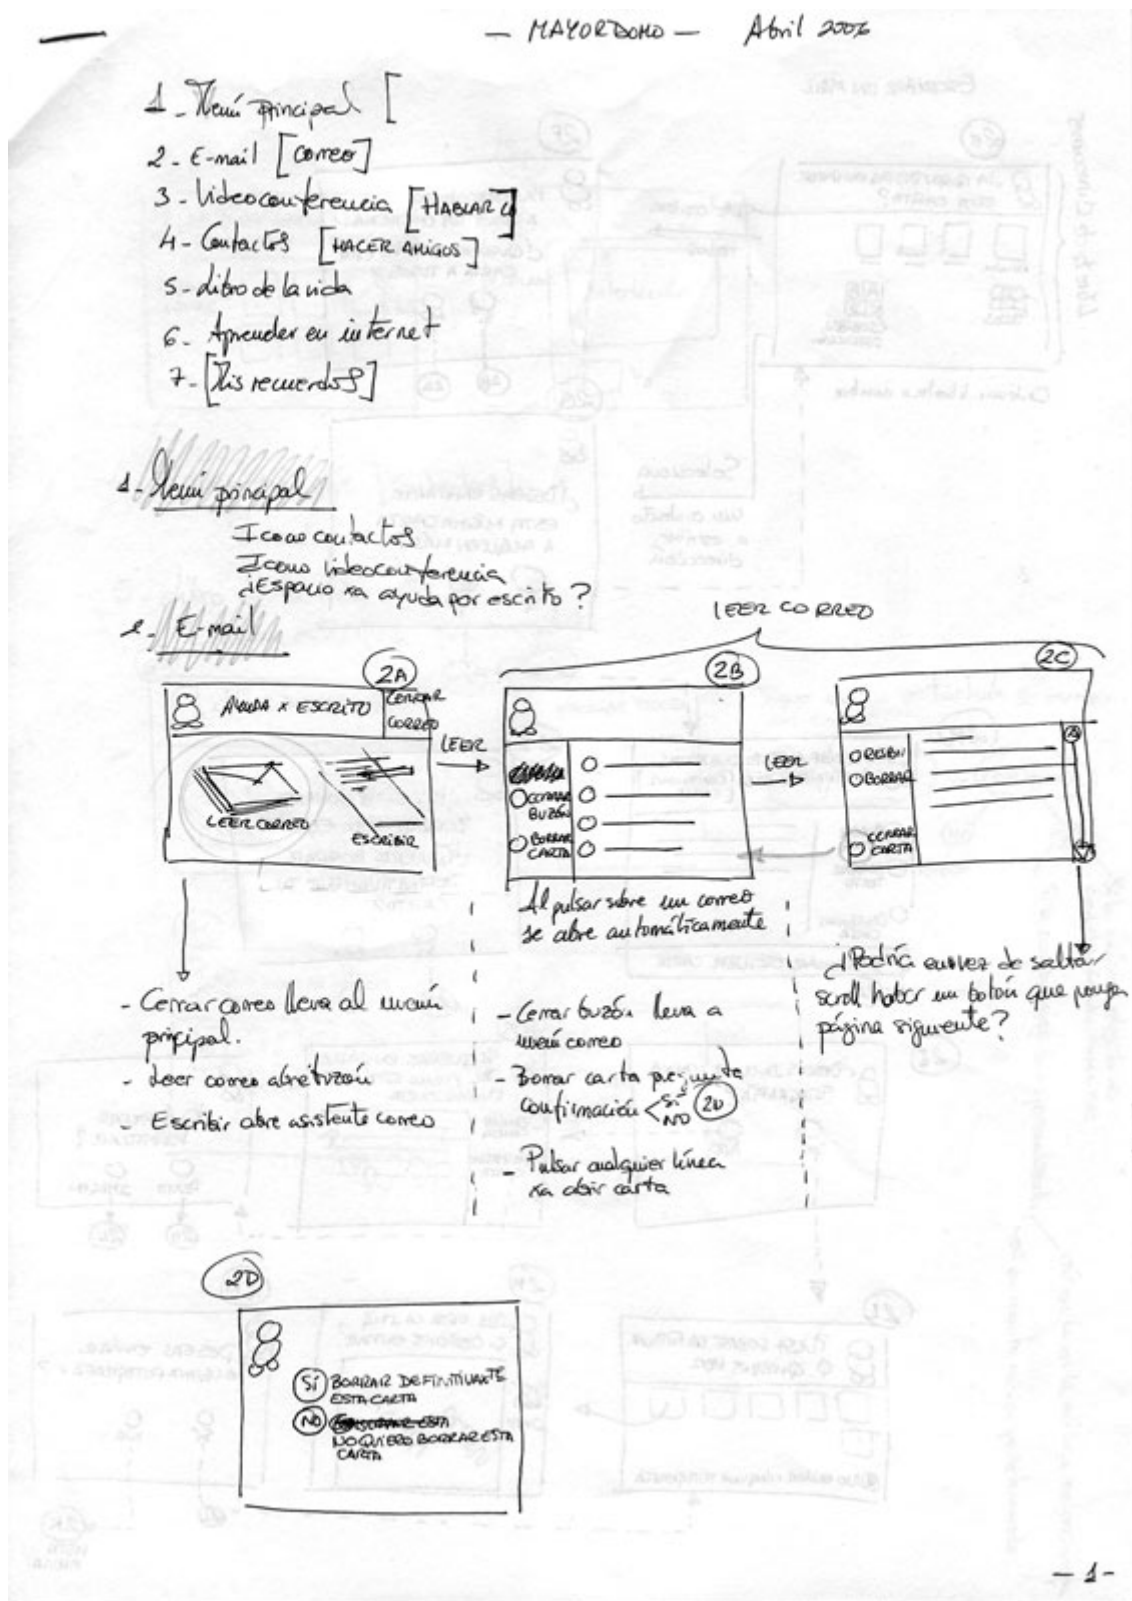 — MAYORDOMO — Abril 2006
1 - Menú principal [
2 - E-mail [Correo]
3 - Videoconferencia [HABLAR]
4 - Contactos [HACER AMIGOS]
5 - Libro de la vida
6 - Aprender en internet
7 - [Mis recuerdos]
1 - Menú principal
Icono contactos
Icono videoconferencia
¿Espacio xa ayuda por escrito?
2 - E-mail
LEER CORREO
2A
AYUDA X ESCRITO
CERRAR
CORREO
LEER CORREO
ESCRIBIR
LEER
2B
CERRAR
BUZÓN
BORRAR
CARTA
LEER
2C
BORRAR
CERRAR
CARTA
Al pulsar sobre un correo
se abre automáticamente
- Cerrar correo lleva al menú
principal.
- Leer correo abre buzón
- Escribir abre asistente correo
- Cerrar buzón lleva a
menú correo
- Borrar carta pregunta
confirmación < SÍ NO 2D
- Pulsar cualquier línea
xa abrir carta
¿Podría en vez de saltar
scroll haber un botón que ponga
página siguiente?
2D
SÍ BORRAR DEFINITIVAMTE
ESTA CARTA
NO
NO QUIERO BORRAR ESTA
CARTA
- 1 -